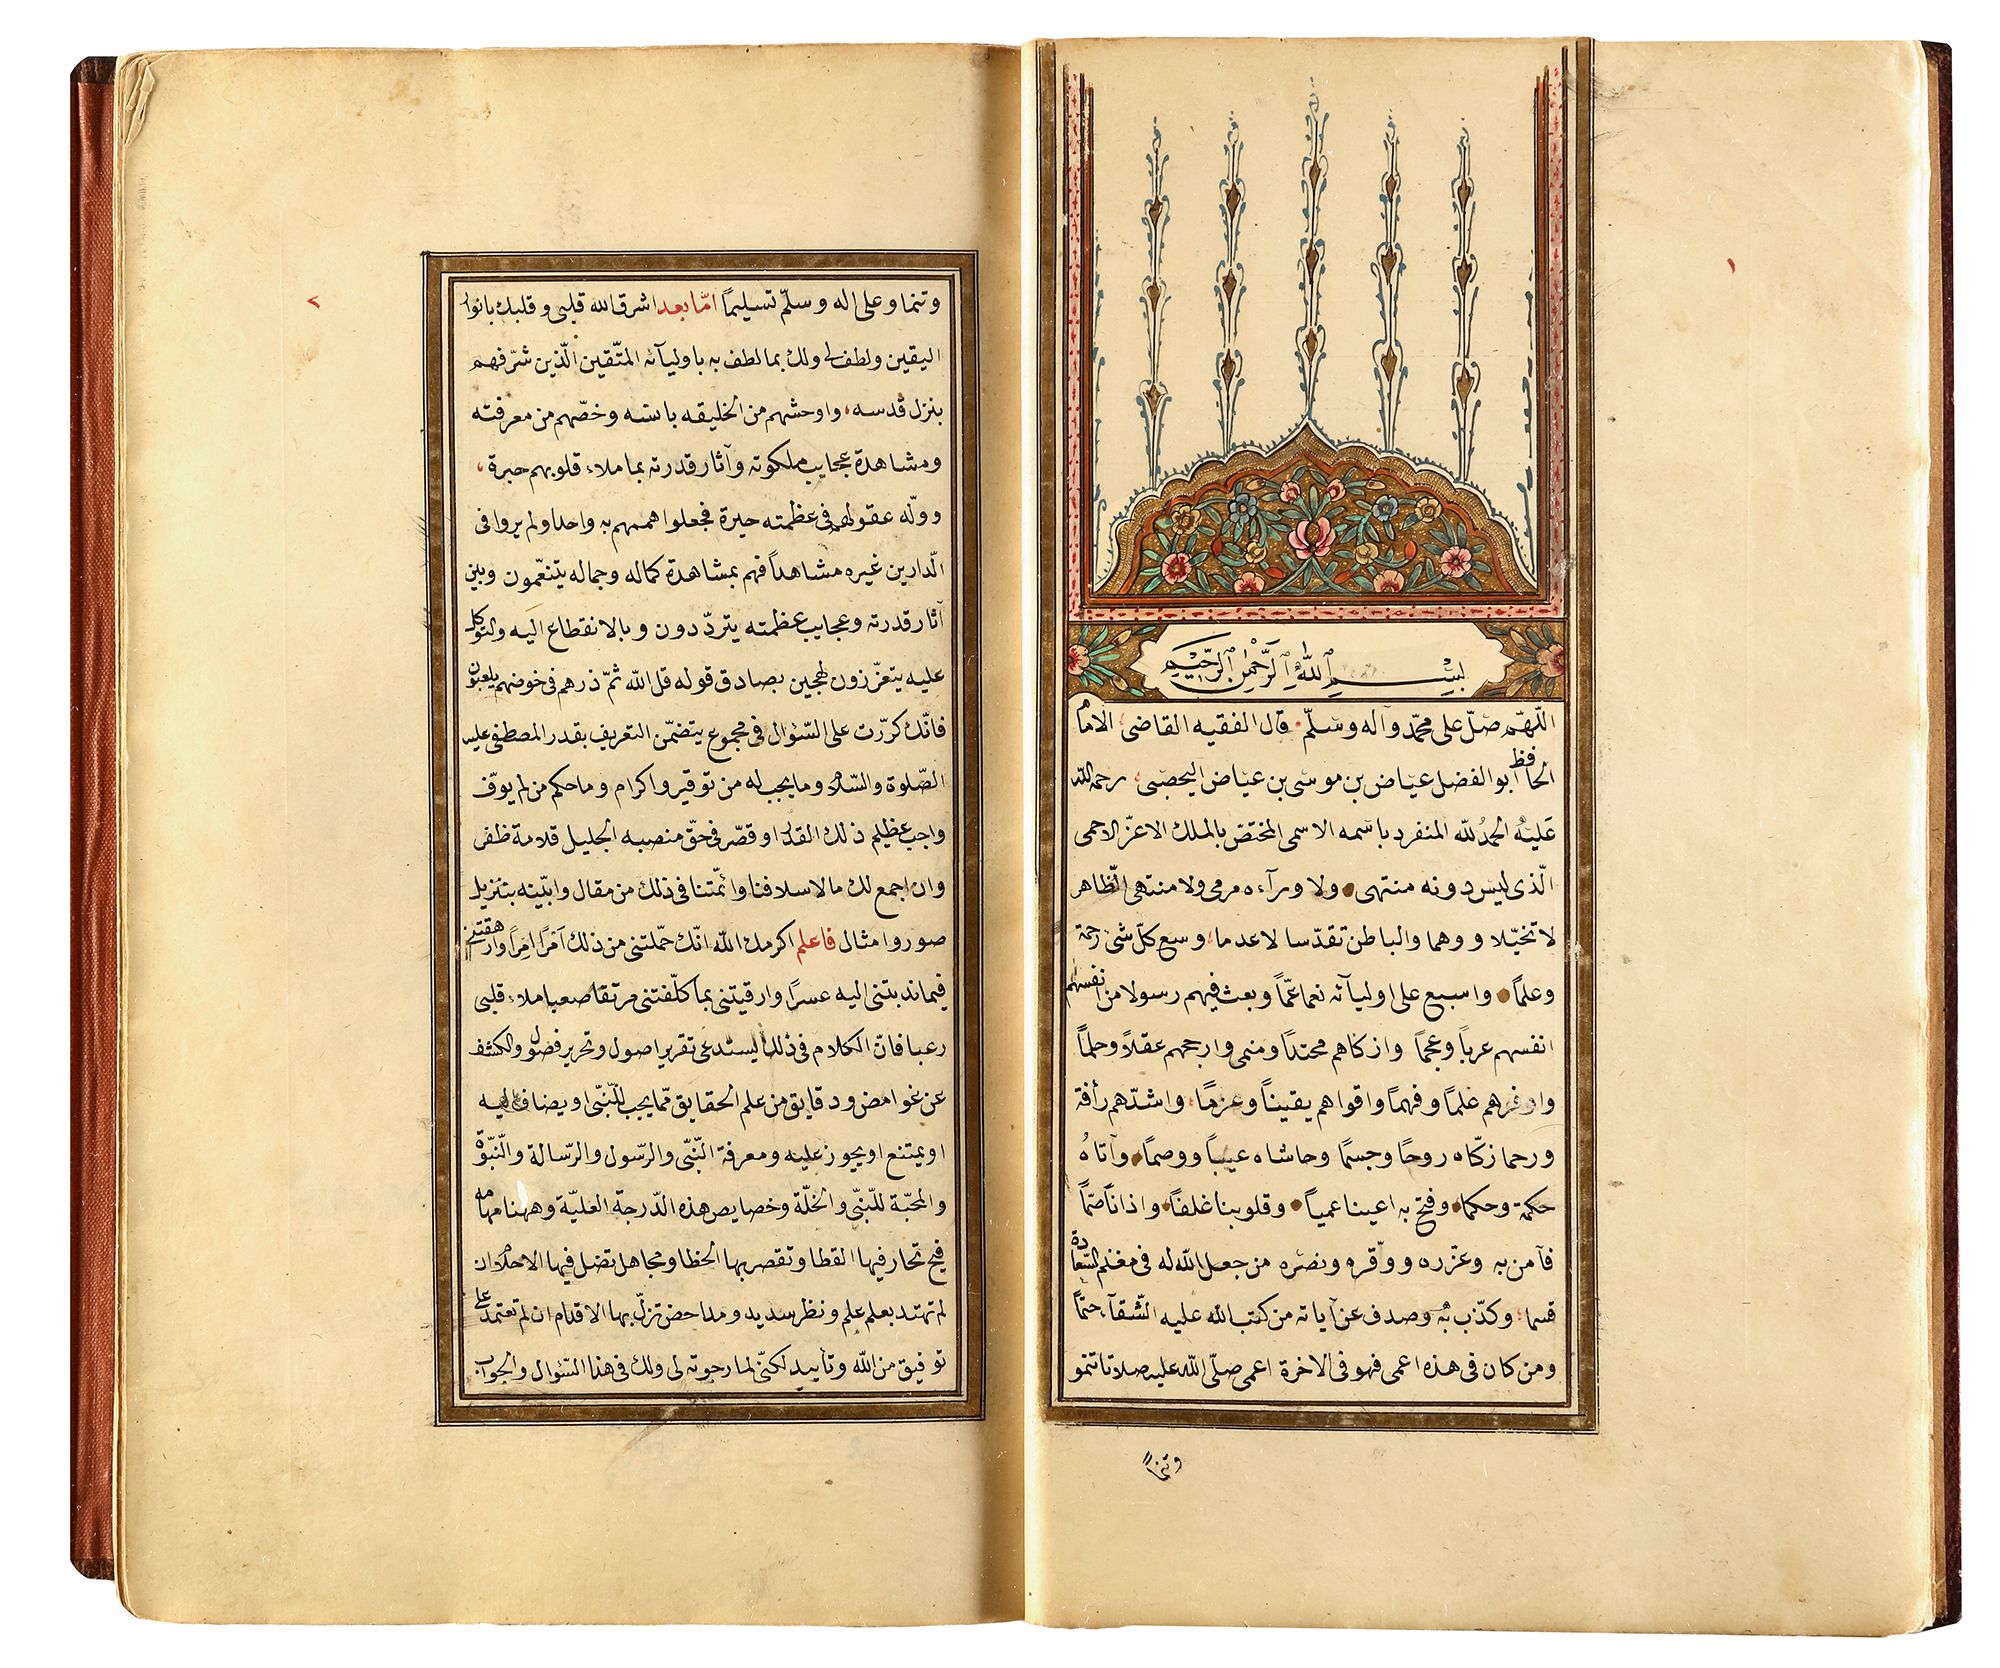 ١
بسم الله الرحمن الرحيم
اللهم صل على محمد وآله وسلم قال الفقيه القاضى الامام
الحافظ ابو الفضل عياض بن موسى بن عياض اليحصبى رحمة الله
عليه الحمد لله المنفرد باسمه الاسمى المختص بالملك الاعز الاحمى
الذى ليس دونه منتهى ولا ورآءه مرمى ولا منتهى الظاهر
لا تخيلا ووهما والباطن تقدسا لا عدما وسع كل شئ رحمة
وعلما واسبغ على اوليآئه نعما عما وبعث فيهم رسولا من انفسهم
انفسهم عربا وعجما وازكاهم محتدا ومنمى وارجحهم عقلا وحلما
واوفرهم علما وفهما واقواهم يقينا وعزما واشدهم رأفة
ورحما زكاه روحا وجسما وحاشاه عيبا ووصما وآتاه
حكمة وحكما وفتح به اعينا عميا وقلوبنا غلفا واذانا صما
فآمن به وعزره ووقره ونصره من جعل الله له فى مغنم السعادة
قسما وكذب به وصدف عن آياته من كتب الله عليه الشقآء حتما
ومن كان فى هذه اعمى فهو فى الاخرة اعمى صلى الله عليه صلاتا تنمو
وتنما
٢
وتنما وعلى اله وسلم تسليما اما بعد اشرق الله قلبى وقلبك بانوار
اليقين ولطف لى ولك بما لطف به باوليآئه المتقين الذين شرفهم
بنزل قدسه واوحشهم من الخليقه بانسه وخصهم من معرفته
ومشاهدة عجايب ملكوته وآثار قدرته بما ملاء قلوبهم حبرة
ووله عقولهم فى عظمته حيرة فجعلوا هممهم به واحدا ولم يروا فى
الدارين غيره مشاهدا فهم بمشاهدة كماله وجماله يتنعمون وبين
آثار قدرته وعجايب عظمته يترددون وبالانقطاع اليه والتوكل
عليه يتعززون لهجين بصادق قوله قل الله ثم ذرهم فى خوضهم يلعبون
فانك كررت على السؤال فى مجموع يتضمن التعريف بقدر المصطفى عليه
الصلوة والسلام وما يجب له من توقير واكرام وما حكم من لم يوف
واجب عظيم ذلك القدر او قصر فى حق منصبه الجليل قلامة ظفر
وان اجمع لك ما لاسلافنا وائمتنا فى ذلك من مقال وابينه بتنزيل
صور وامثال فاعلم اكرمك الله انك حملتنى من ذلك امرا امرا وارهقتنى
فيما ندبتنى اليه عسرا وارقيتنى بما كلفتنى مرتقا صعبا ملاء قلبى
رعبا فان الكلام فى ذلك يستدعى تقرير اصول وتحرير فصول والكشف
عن غوامض ودقايق من علم الحقايق مما يجب للنبى او يضاف اليه
او يمتنع او يجوز عليه ومعرفة النبى والرسول والرسالة والنبوة
والمحبة للنبى والخلة وخصايص هذه الدرجة العلية وههنا مهامه
فيح تحار فيها القطا وتقصر بها الخطا ومجاهل تضل فيها الاحلام ان
لم تهتد بعلم علم ونظر سديد ومداحض تزل بها الاقدام ان لم تعتمد على
توفيق من الله وتأييد لكنى لما رجوته لى ولك فى هذا السؤال والجواب